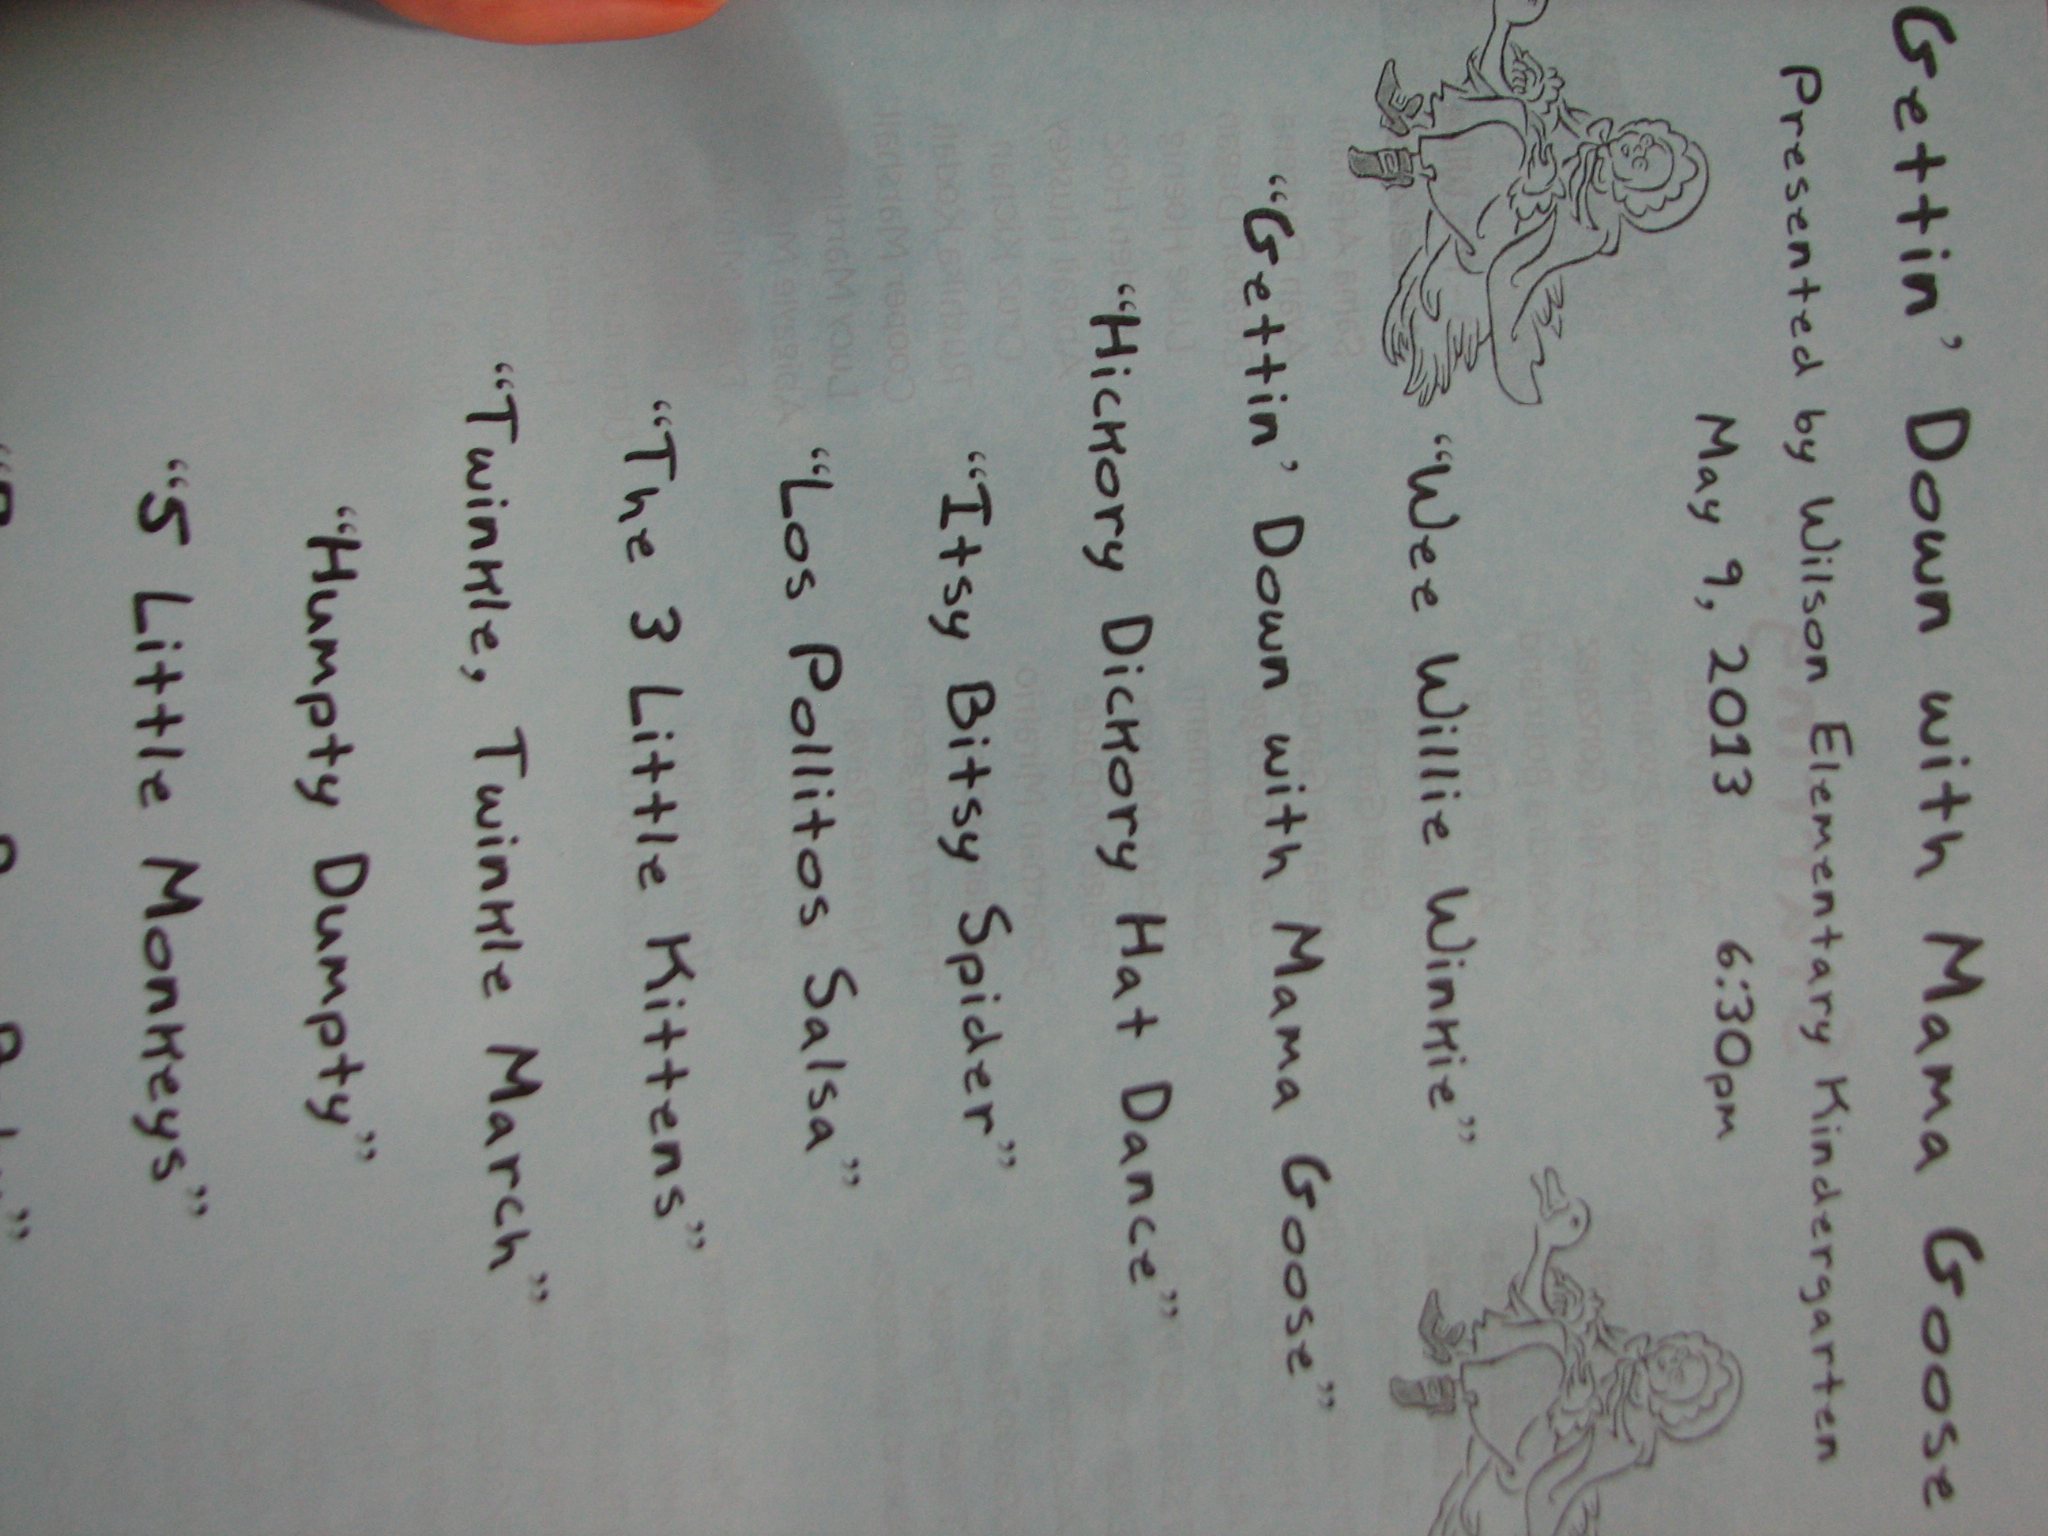 Gettin' Down with Mama Goose
Presented by Wilson Elementary Kindergarten
May 9, 2013 6:30pm
"Wee Willie Winkie"
"Gettin' Down with Mama Goose"
"Hickory Dickory Hat Dance"
"Itsy Bitsy Spider"
"Los Pollitos Salsa"
"The 3 Little Kittens"
"Twinkle, Twinkle March"
"Humpty Dumpty"
"5 Little Monkeys"